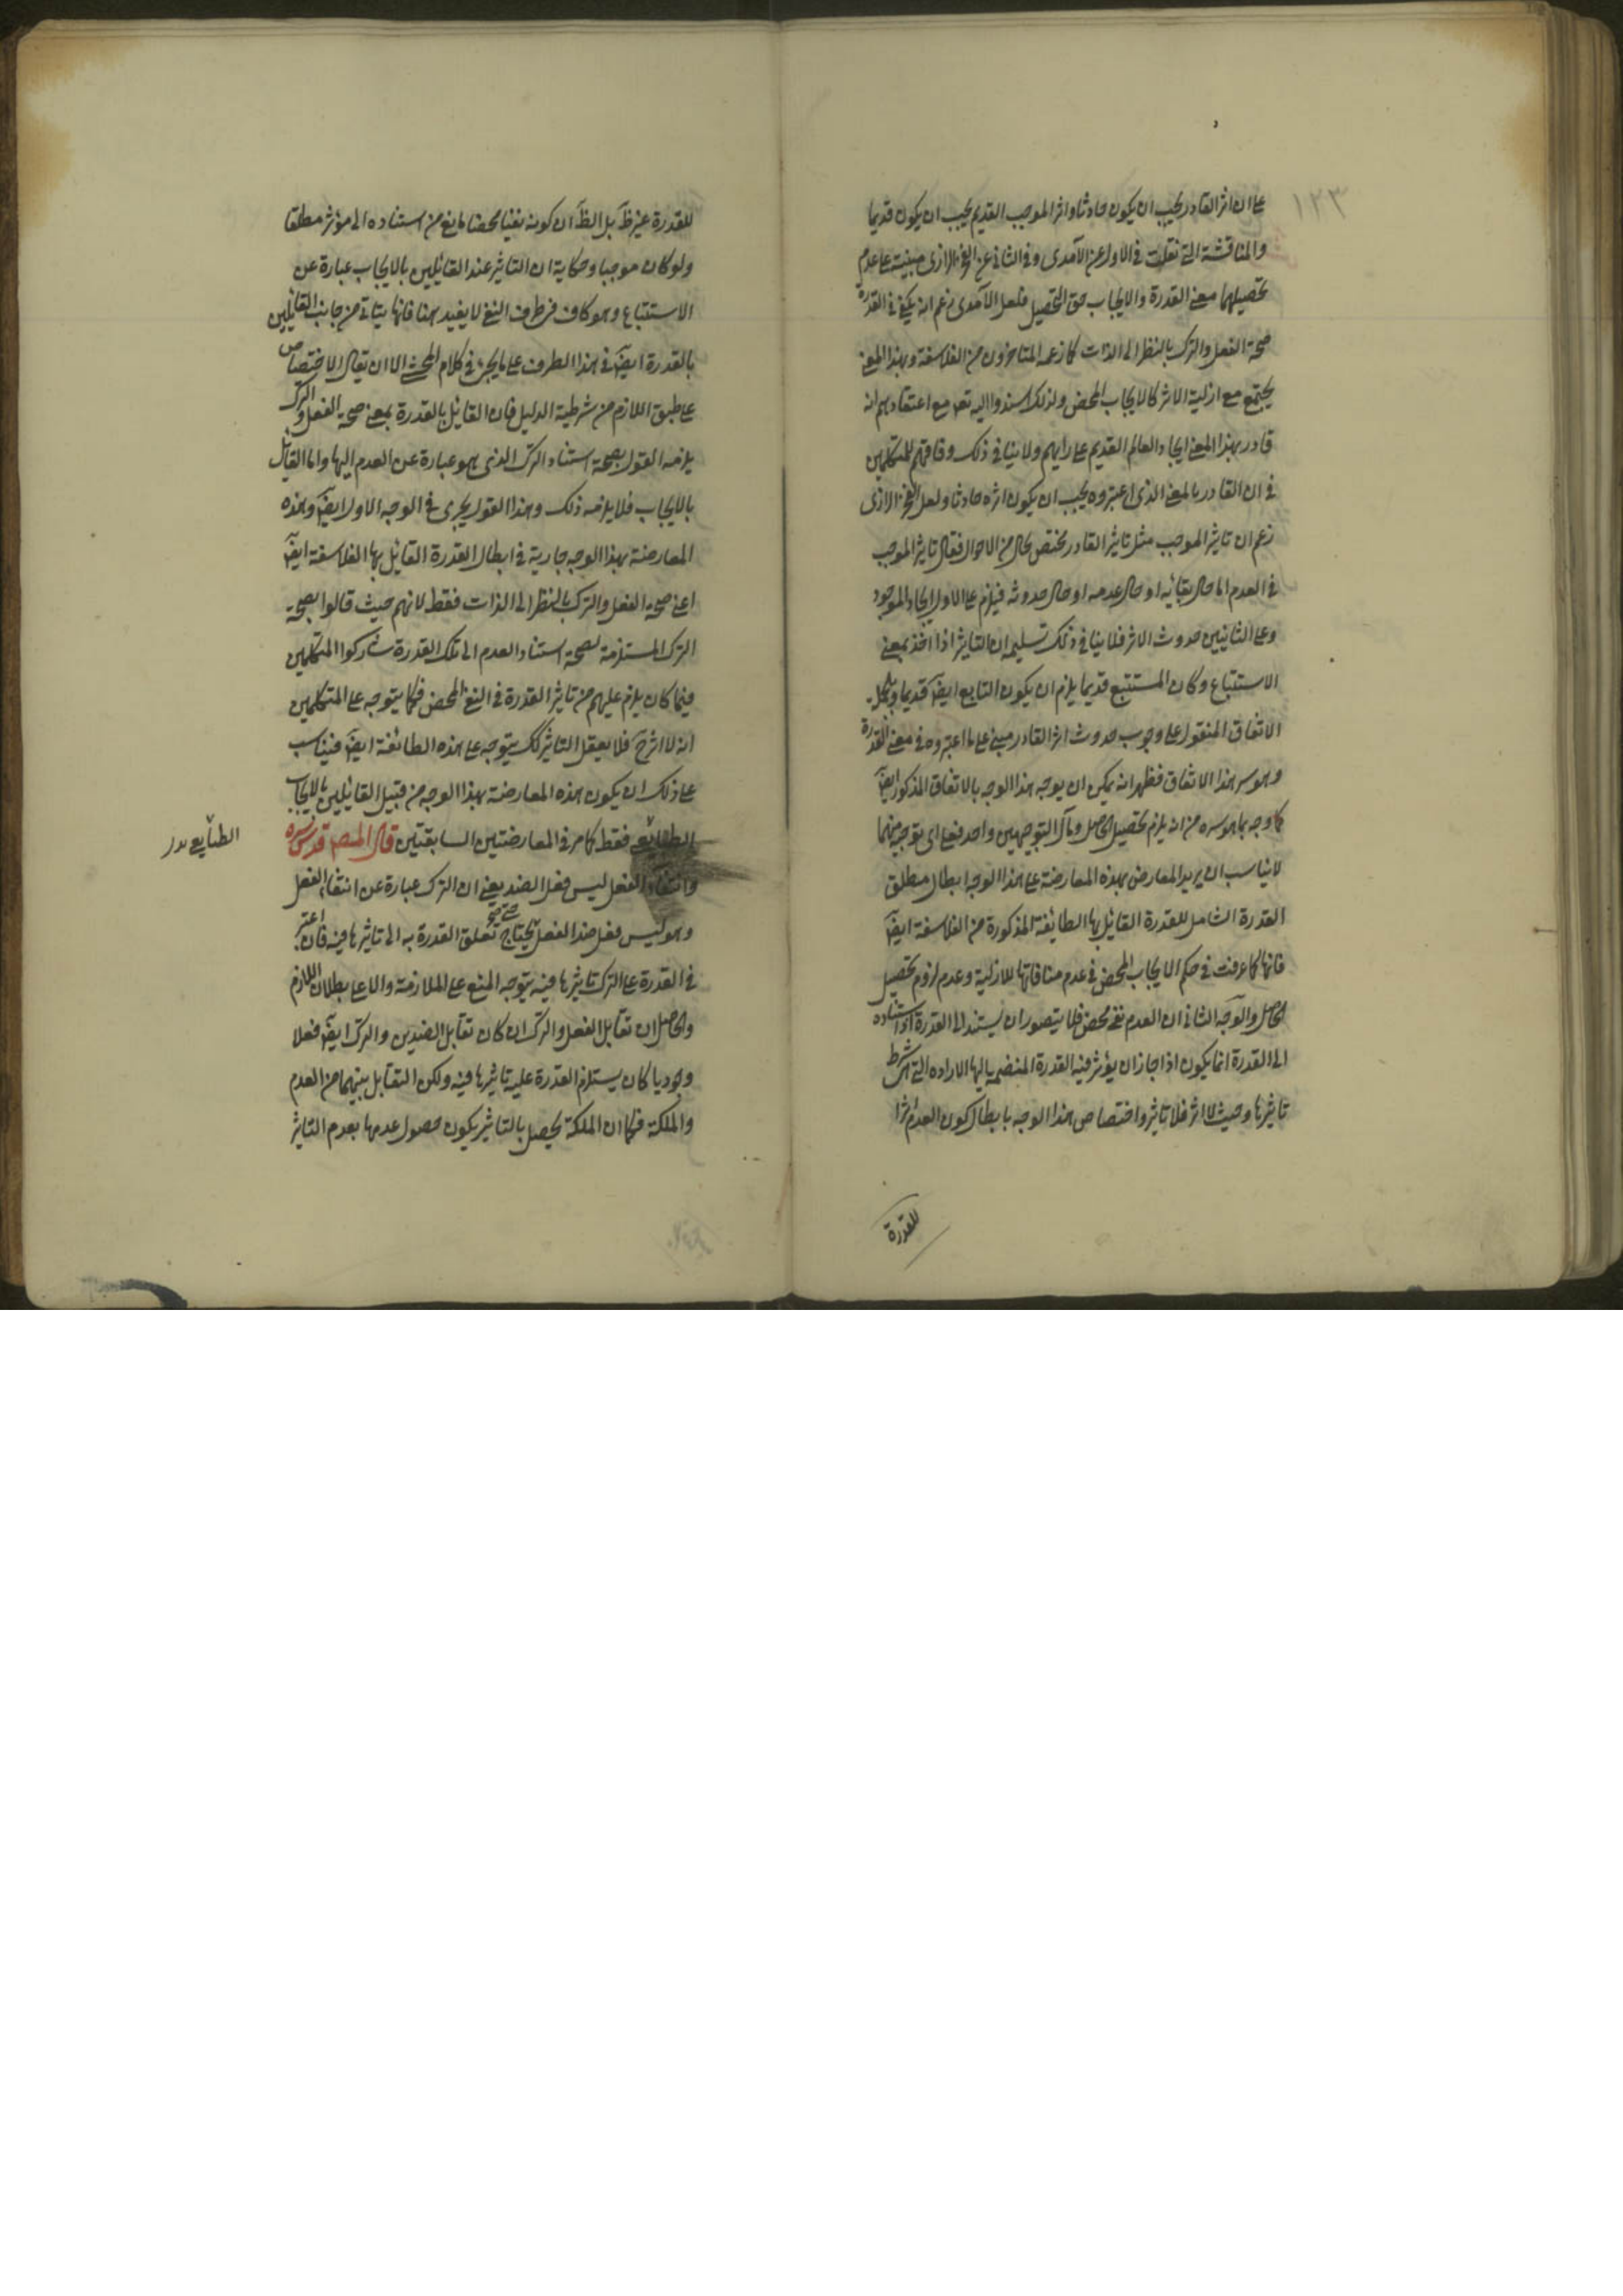 ١٢٣
على ان اثر القادر يجب ان يكون حادثا واثر الموجب القديم يجب ان يكون قديما
والمناقشة التى نقلت فى الاول عن الآمدى وفى الثانى عن الفخر الرازى مبنية على عدم
تحصيلهما معنى القدرة والايجاب حق التحصيل فلعل الآمدى زعم انه يكفى فى القدرة
صحة الفعل والترك بالنظر الى الذات كما زعمه المتاخرون من الفلاسفة وبهذا المعنى
يجتمع مع ازلية الاثر كالايجاب المحض ولذلك اسندوا اليه تعـ مع اعتقادهم انه
قادر بهذا المعنى ايجاد العالم القديم على رايهم ولا ينافى ذلك وفاقهم للمتكلمين
فى ان القادر بالمعنى الذى اعتبروه يجب ان يكون اثره حادثا ولعل الفخر الرازى
زعم ان تاثير الموجب مثل تاثير القادر مختص بحال من الاحوال فقال تاثير الموجب
فى العدم اما حال بقائه او حال عدمه او حال حدوثه فيلزم على الاول ايجاد الموجود
وعلى الثانيين حدوث الاثر فلا ينافى ذلك تسليمه ان التاثير اذا اخذ بمعنى
الاستتباع وكان المستتبع قديما يلزم ان يكون التابع ايضا قديما وبالجملة
الاتفاق المنقول على وجوب حدوث اثر القادر مبنى على ما اعتبروه فى معنى القدرة
وهو سر هذا الاتفاق فظهر انه يمكن ان يوجه هذا الوجه بالاتفاق المذكور ايضا
كما وجه بما هو سره من انه يلزم تحصيل الحاصل ومآل التوجيهين واحد فعلى اى توجيه منهما
لا يناسب ان يريد المعارض بهذه المعارضة على هذا الوجه ابطال مطلق
القدرة الشامل للقدرة القائل بها الطائفة المذكورة من الفلاسفة ايضا
فانها كما عرفت فى حكم الايجاب المحض فى عدم منافاتها للازلية وعدم لزوم تحصيل
الحاصل والوجه الثانى ان العدم نفى محض فلا يتصور ان يستند الى القدرة اذ استناده
الى القدرة انما يكون اذا جاز ان يؤثر فيه القدرة المنضم اليها الارادة التى هى شرط
تاثيرها وحيث لا اثر فلا تاثير واختصاص هذا الوجه بابطال كون العدم اثرا
للقدرة
للقدرة غير ظـ بل الظـ ان كونه نفيا محضا مانع من استناده الى مؤثر مطلقا
ولو كان موجبا وحكاية ان التاثير عند القائلين بالايجاب عبارة عن
الاستتباع وهو كاف فى طرف النفى لا يفيد هنا فانها يتاتى من جانب القائلين
بالقدرة ايضا فى هذا الطرف على ما يجئ فى كلام المحشى الا ان يقال الاختصاص
على طبق اللازم من شرطية الدليل فان القائل بالقدرة بمعنى صحة الفعل والترك
يلزمه القول بصحة استناد الترك الذى هو عبارة عن العدم اليها واما القائل
بالايجاب فلا يلزمه ذلك وهذا القول يجرى فى الوجه الاول ايضا وهذه
المعارضة بهذا الوجه جارية فى ابطال القدرة القائل بها الفلاسفة ايضا
اعنى صحة الفعل والترك بالنظر الى الذات فقط لانهم حيث قالوا بصحة
الترك المستلزمة لصحة استناد العدم الى تلك القدرة شاركوا المتكلمين
فيما كان يلزم عليهم من تاثير القدرة فى النفى المحض فكما يتوجه على المتكلمين
انه لا اثر ح فلا يعقل التاثير كذلك يتوجه على هذه الطائفة ايضا فيناسب
على ذلك ان يكون هذه المعارضة بهذا الوجه من قبيل القائلين بالايجاب
فقط كما مر فى المعارضتين السابقتين قال المصـ قدس سره
وانتفاء الفعل ليس فعل الضد يعنى ان الترك عبارة عن انتفاء الفعل
وهو ليس فعل ضد الفعل حتى يحتاج صحة تعلق القدرة به الى تاثيرها فيه فان اعتبر
فى القدرة على الترك تاثيرها فيه يتوجه المنع على الملازمة والا على بطلان اللازم
والحاصل ان تقابل الفعل والترك ان كان تقابل الضدين والترك ايضا فعلا
وجوديا كان يستلزم القدرة عليه تاثيرها فيه ولكن التقابل بينهما من العدم
والملكة فكما ان الملكة يحصل بالتاثير يكون حصول عدمها بعدم التاثير